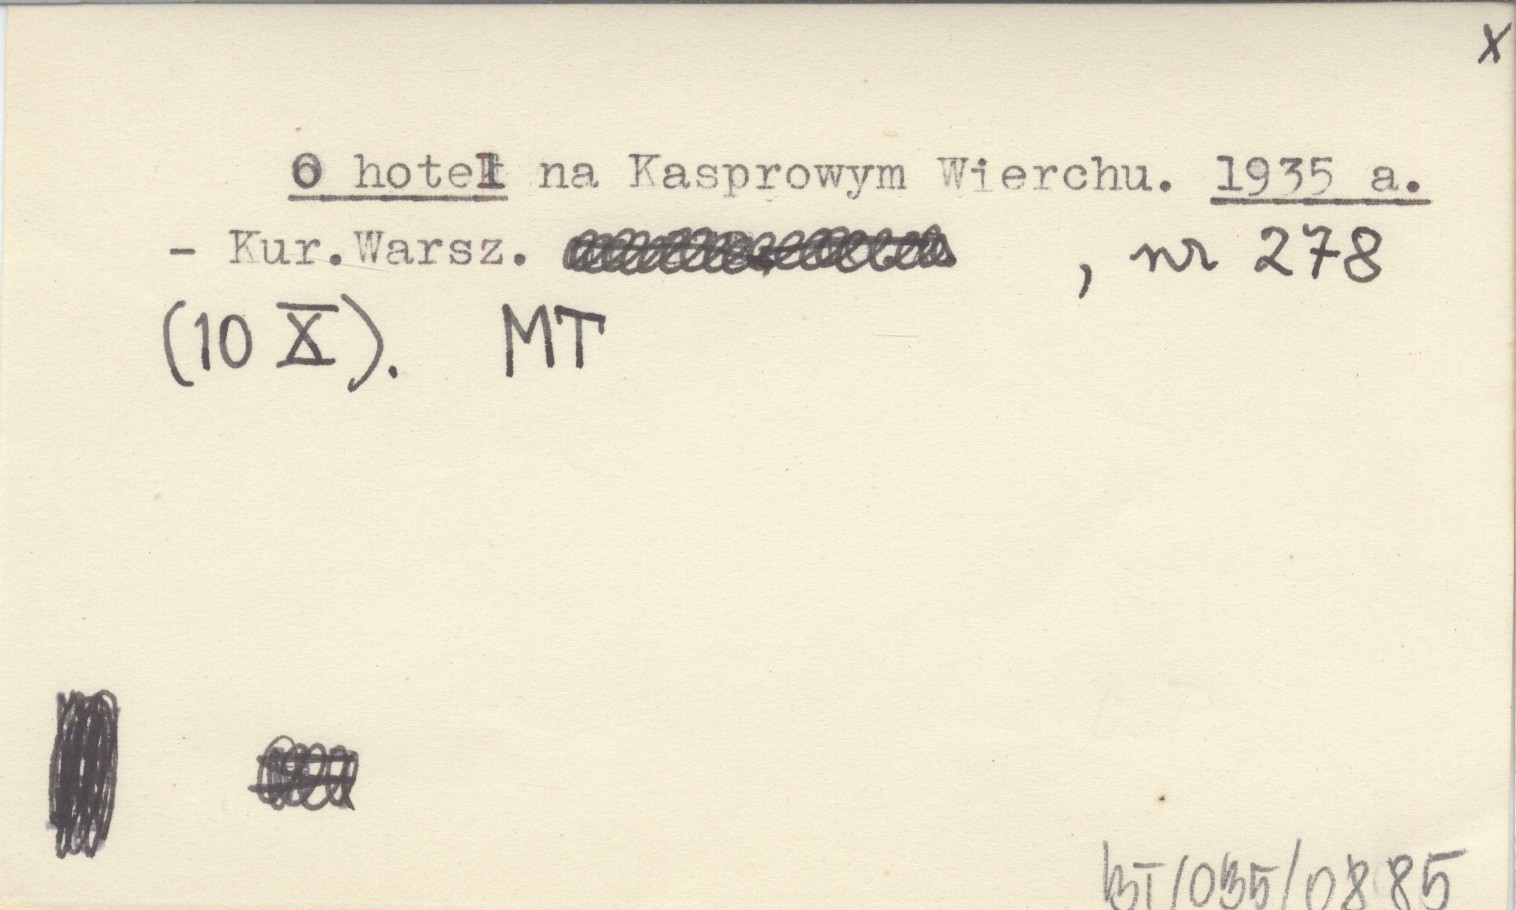 X
O hotel na Kasprowym Wierchu. 1935 a.
- Kur.Warsz. , nr 278
(10 X). MT
BT/035/0885